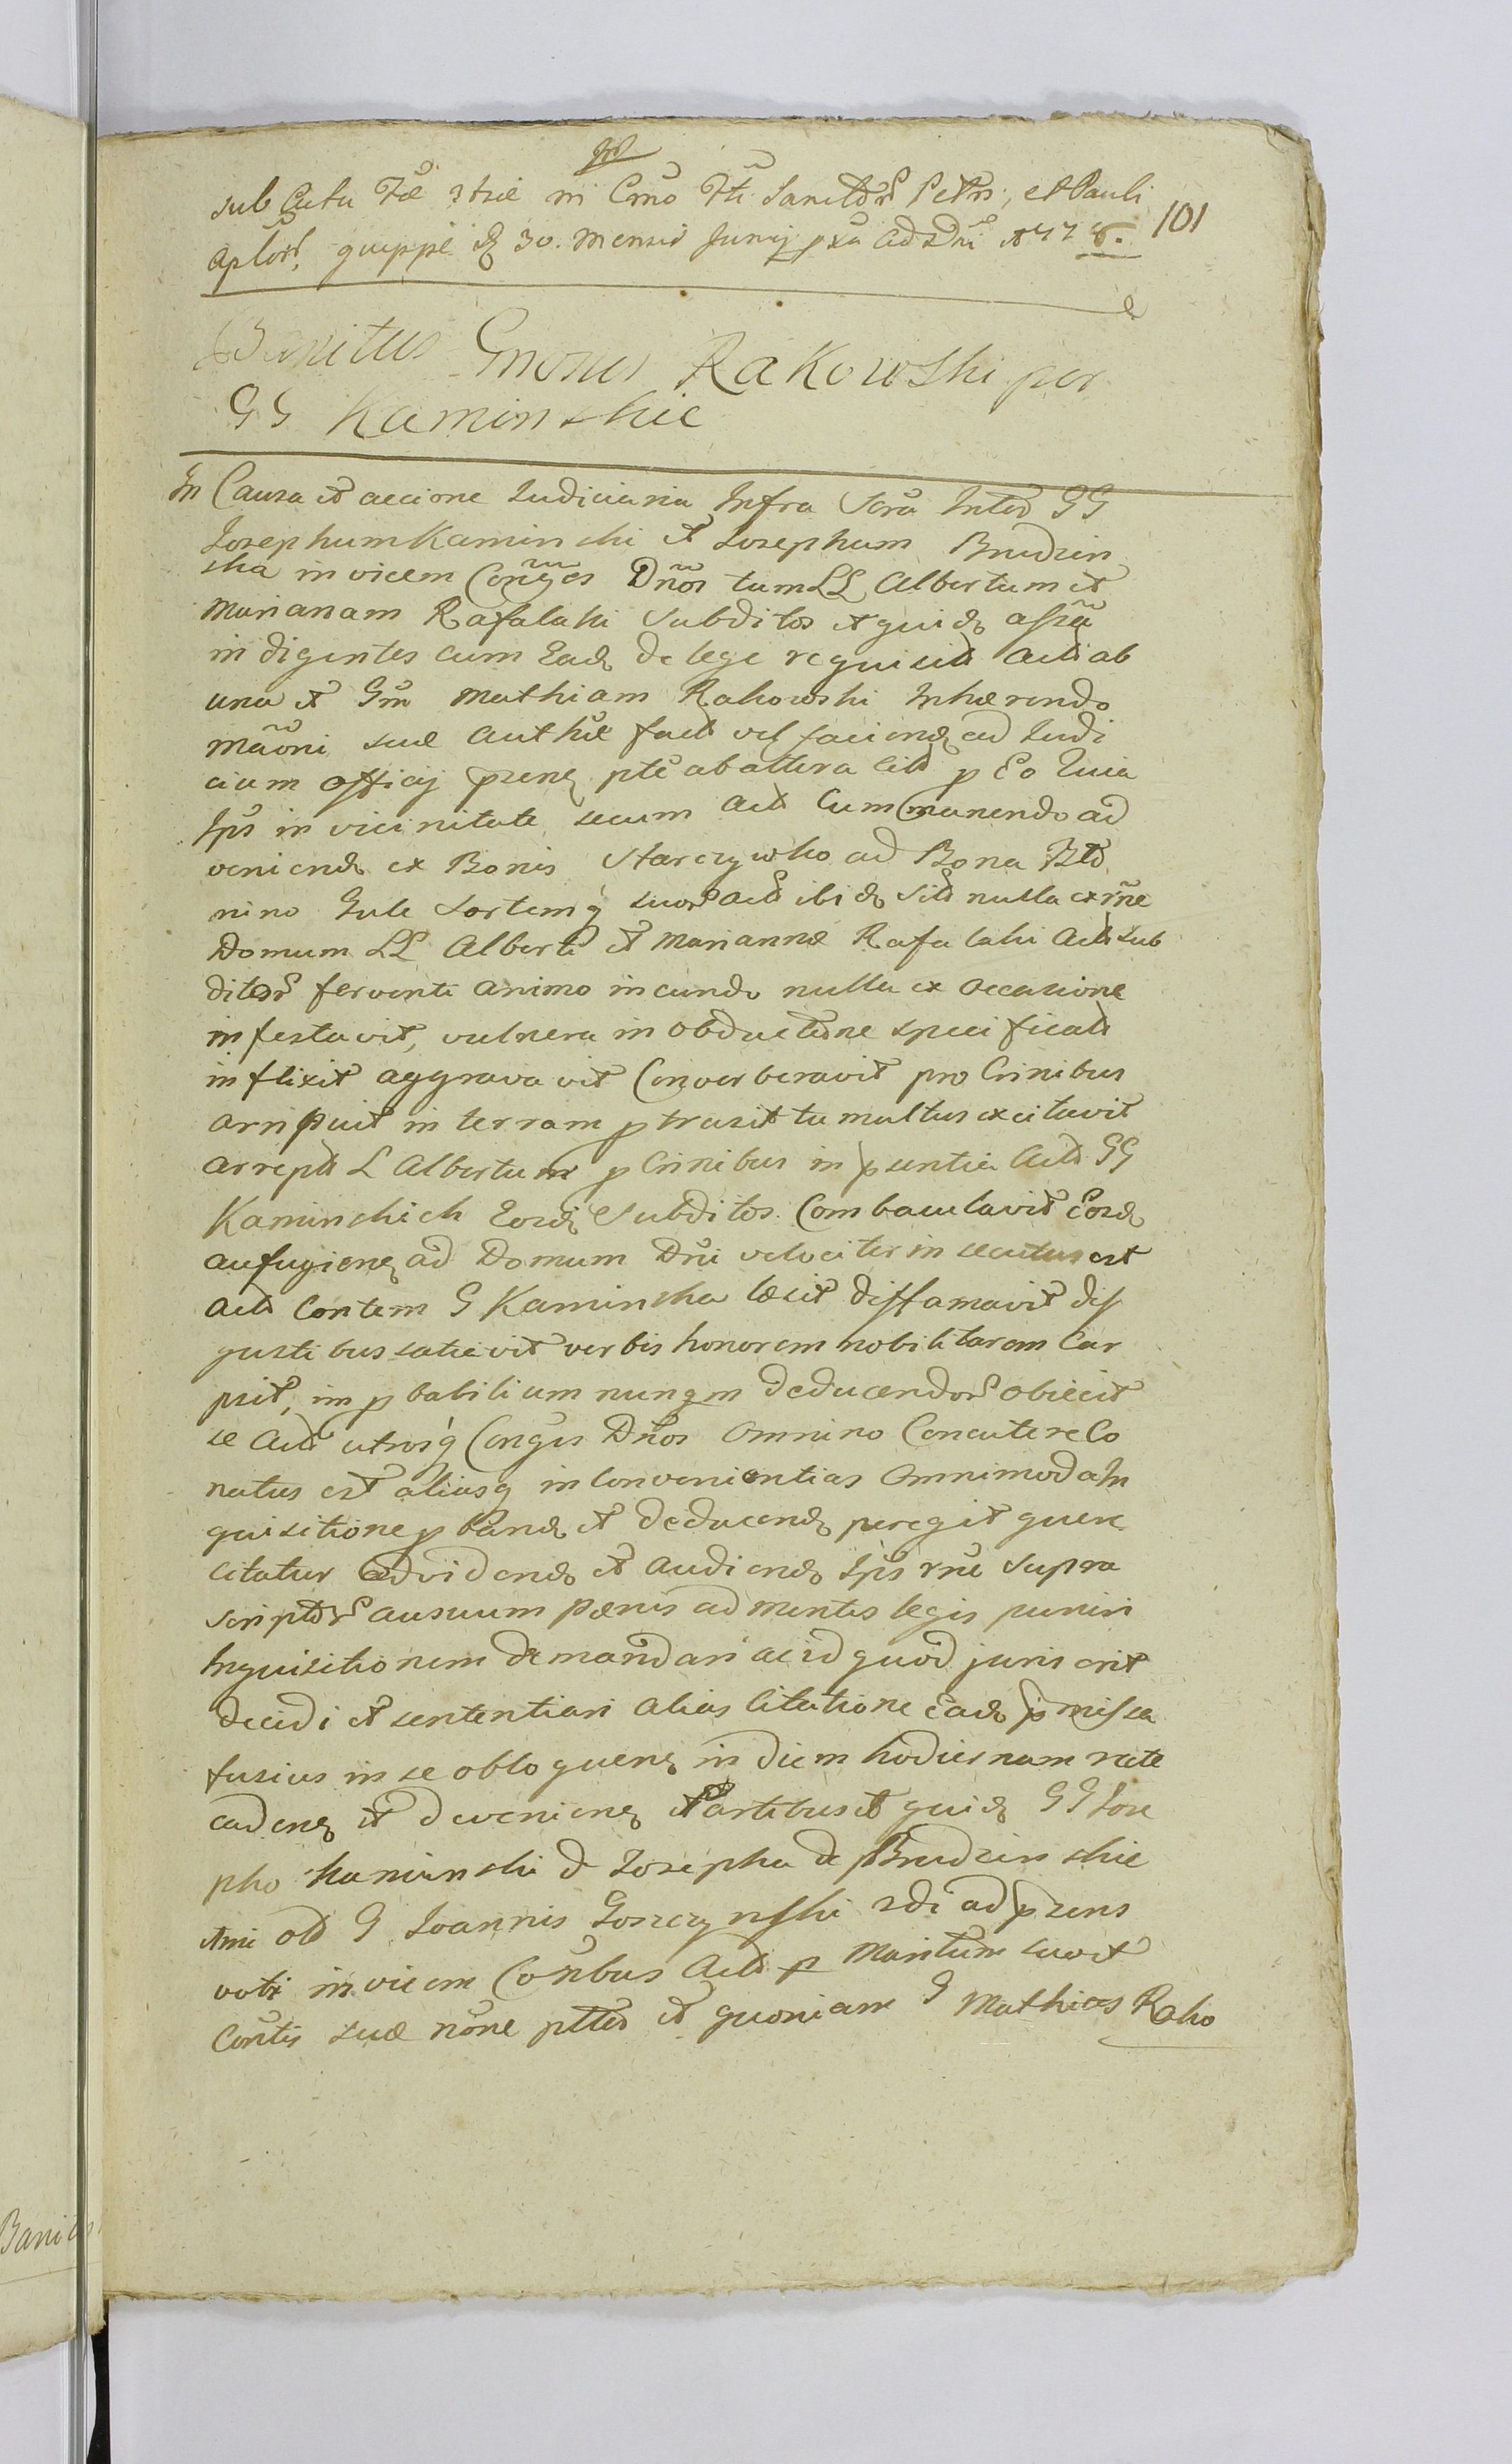 sub Actu Fæ 3tiæ in Crno Fti Sanctor Petri, et Pauli
101
Aplor, quippe 30. Mensis Junij pxa Ad Dni 177
Banitus Gnosus Rakowski per
GG Kaminskie
In Causa et accione Judiciaria Infra Scra Inter GG
Josephum Kaminski et Josepham Brudzin
ska invicem Conges Dnos tum LL Albertum et
Marianam Rafalski Subditos et quid assa
indigentes cum Ead de lege requisit Act ab
una et Gm Mathiam Rakowski Inhærendo
Maoni suæ Auth fact vel faciend ad Judi
cium Officij psens pte ab altera Cit p Eo Quia
Ips in vicinitate secum Act Cum manendo ad
veniend ex Bonis Starczywko ad Bona
nino Gule Sortemq suor Act ibid sit nulla ex rne
Domum LL Alberti et Mariannæ Rafalski Act Sub
ditor ferventi animo incundo nulla ex occasione
infestavit, vulnera in obductione specificat
inflixit aggravavit Conver beravit pro Crinibus
arripuit in terram ptrusit tumultus excitavit
arrept L Albertum p Crinibus in psentia Act GG
Kaminskich Eosd Subditos Combaculavit Eosd
aufugiens ad Domum Dni velociter insecutus est
Act Contem G Kaminska læsit diffamavit dis
gustibus satiavit verbis honorem nobilitarem Car
psit, impbabilium nunqm deducendor obiecit
se Act utrosq Conges Dnos Omnino Concutere Co
natus est aliasq inconvenientias Omnimoda In
quisitione pband et deducend peregit quare
citatur Ad vidend et Audiend Ips rne supra
scriptor ausuum pænis ad mentes legis puniri
Inquisitionem demandari ac id quod juris erit
decidi et sententiari alias Citatione Ead pmissa
fusius in se obloquens in diem hodiernam rite
cadens et deveniens Partibus et quid GG Jose
pho Kaminski et Josepha de Brudzinskie
olim G Joannis Goszczynski 2di ad psens
voti invicem Conbus Act p Maritum suo et
Contis suæ none ptter et quoniam G Mathias Rako